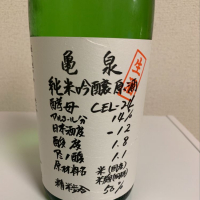 亀泉
生
純米吟醸原酒
酵母 CEL-24
アルコール分 14%
日本酒度 -12
酸度 1.8
アミノ酸 1.1
原材料名 米(国産)
米麹(国産米)
精米歩合 50%